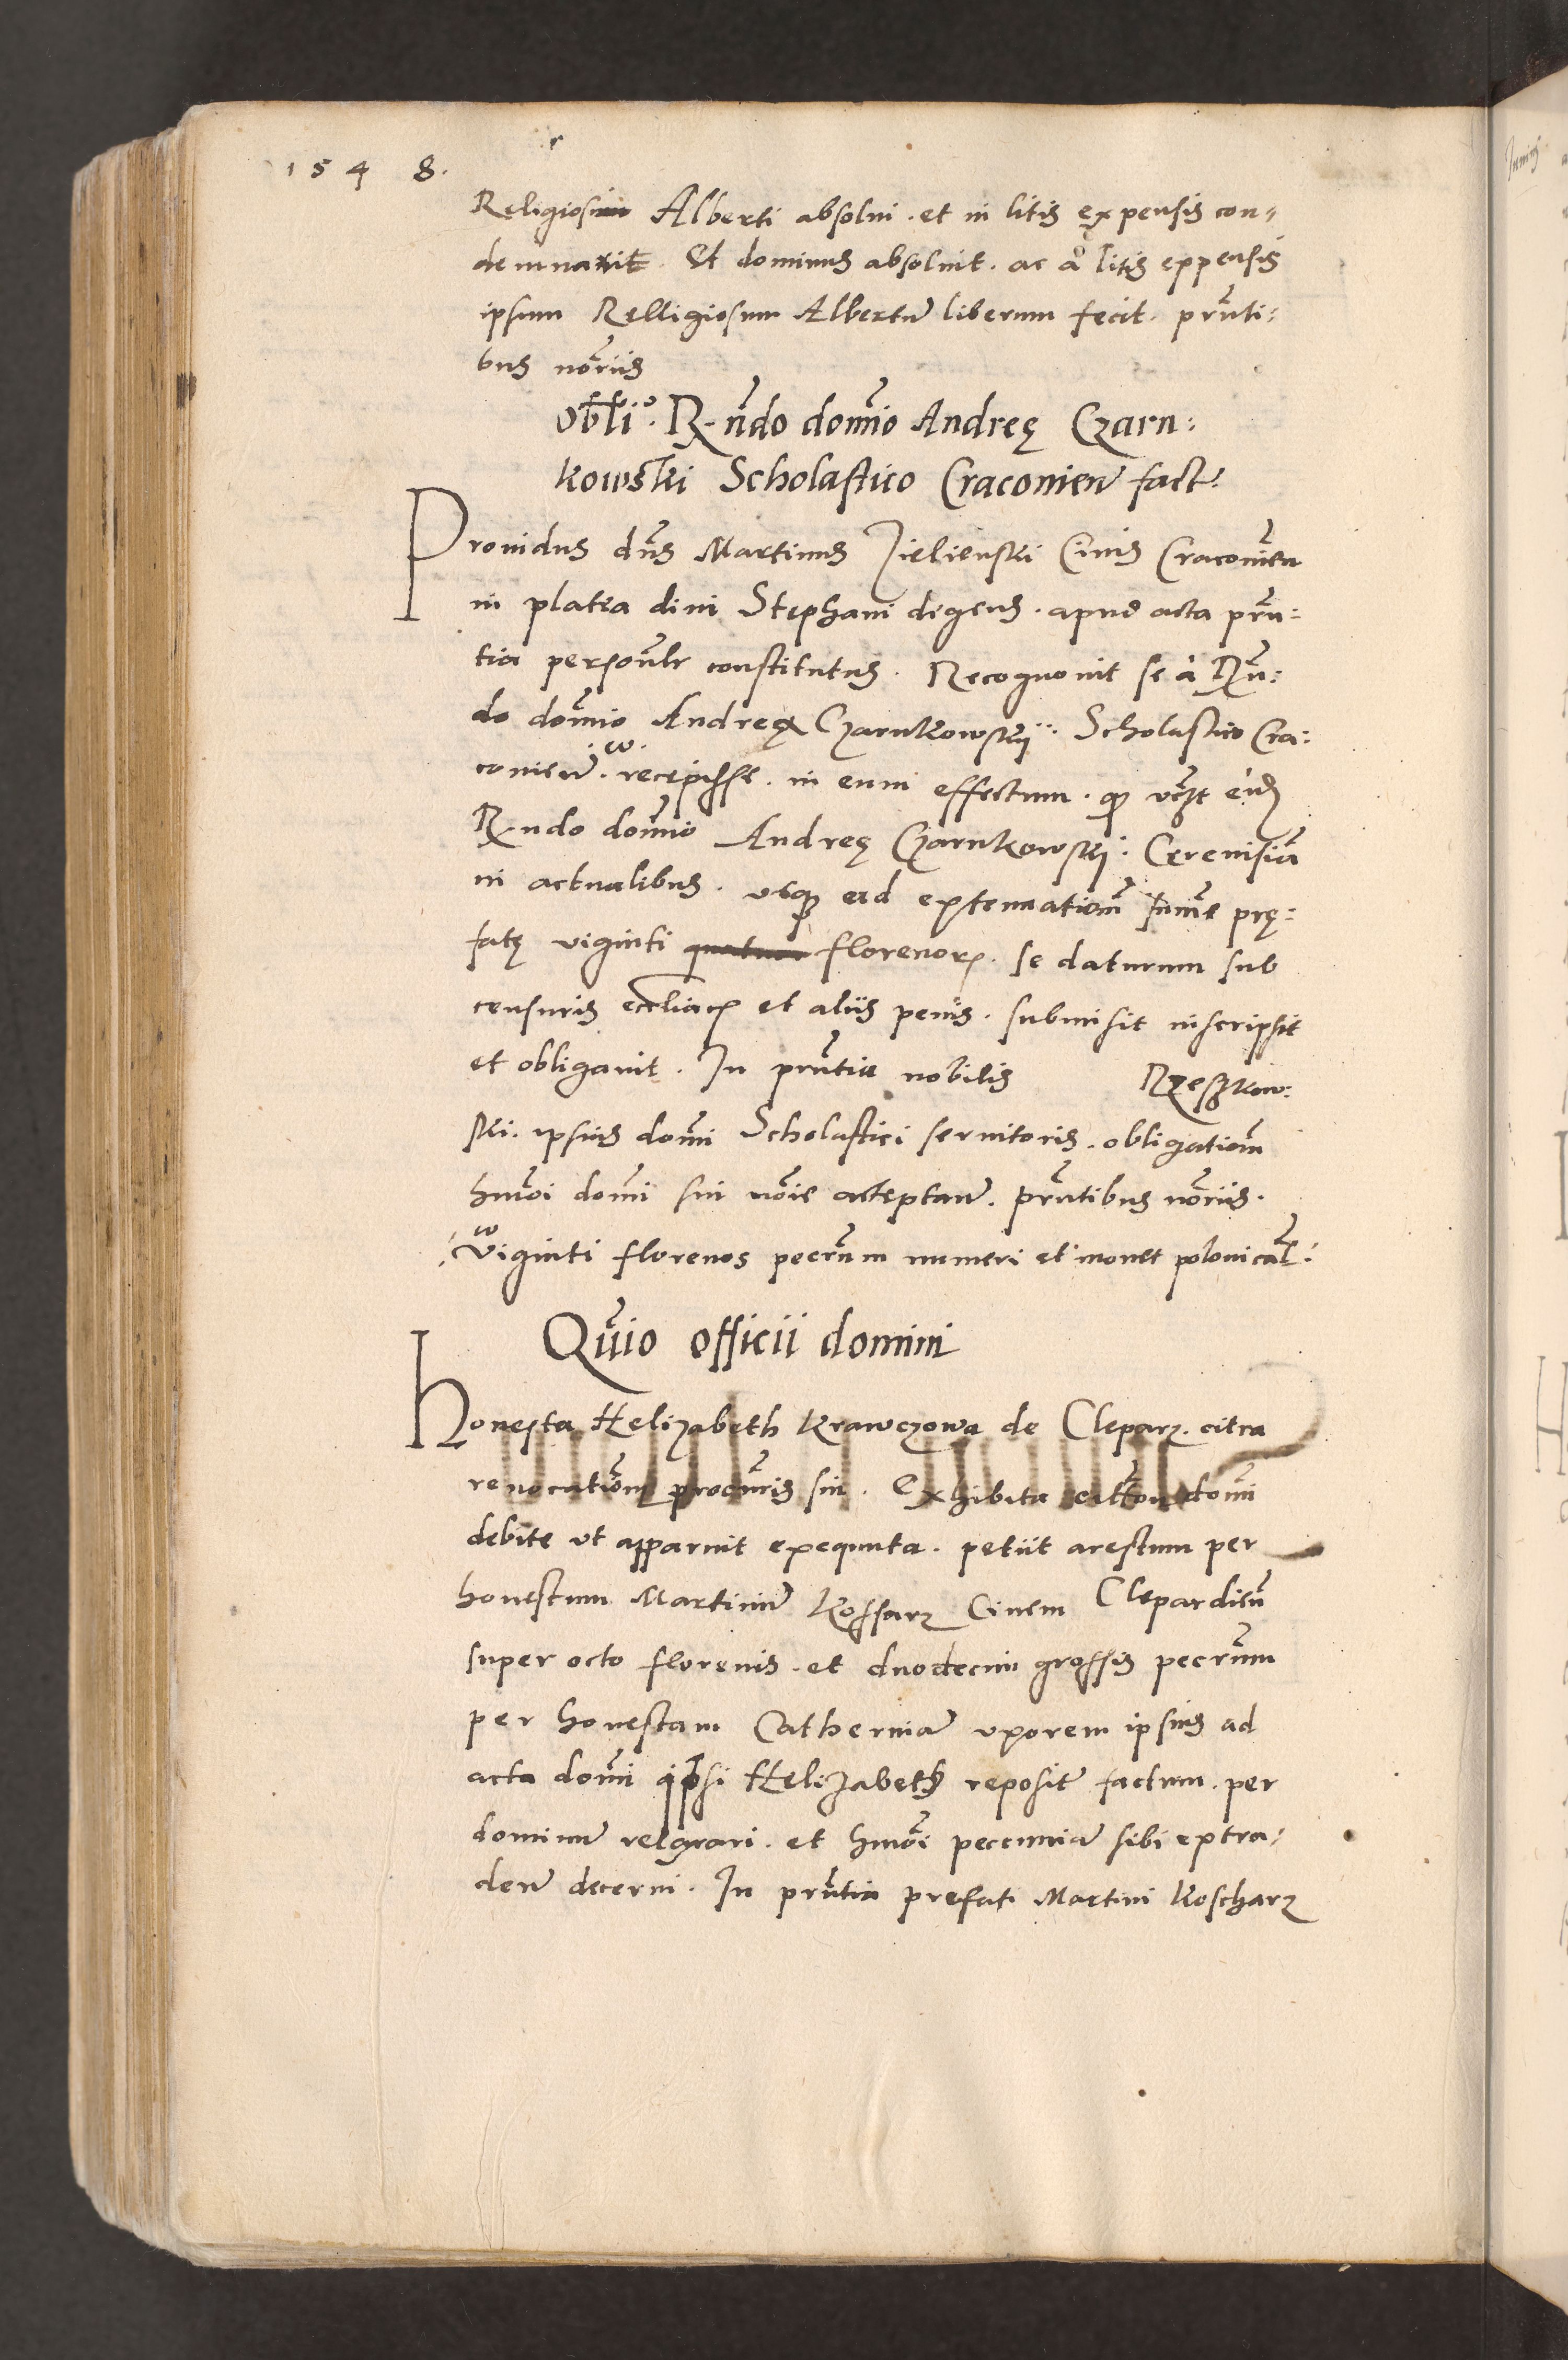 1548.
Religiosi Alberti absolui. et in litis expensis con-
demnauit. Et dominus absoluit. ac a litis expensis
ipsum Relligiosum Albertũ liberum fecit. pñti-
bus nõriis
Obłi°. R-ndo domĩo Andreę Czarn-
kowski Scholastico Cracouieñ fact:
Prouidus dñs Martinus Zielienski Ciuis Cracouieñ
in platea diui Stephani degens. apud acta pñ-
tia persoñlr constitutus. Recognouit se a Rñ-
do domĩo Andreę Czarnkowskij: Scholastico Cra-
couieñ. recepisse. in eum effectum. qz eidẽ
R-ndo domĩo Andreę Czarnkowskj: Cereuisiã
in actualibus. usqz ad extenuationẽ summe prę-
fatę viginti quatuor florenorz. se daturum sub
censuris eccliacz et aliis penis. submisit inscripsit
et obligauit. In pñtia nobilis Rzeszkow-
ski. ipsius domĩ Scholastici seruitoris. obligationẽ
hmõi domĩ sui nõie acceptañ. pñtibus nõriis.
Viginti florenos pecũrum numeri et monet polonicaĺ:
Qũio officii domini
Honesta Helizabeth Krawczowa de Cleparz. citra
reuocationẽ procũris sui. Exhibita domĩ
debite ut apparuit exequuta. petiit arestum per
honestum Martinũ Kossarz Ciuem Clepardieñ
super octo florenis. et duodecim grossis pecũrum
per honestam Catherinã uxorem ipsius ad
acta domĩ ipsi Helizabeth reposit̃ factum. per
dominũ relaxari. et hmõi pecuniã sibi extra-
deñ decerni. In pñtia prefati Martini Koscharz